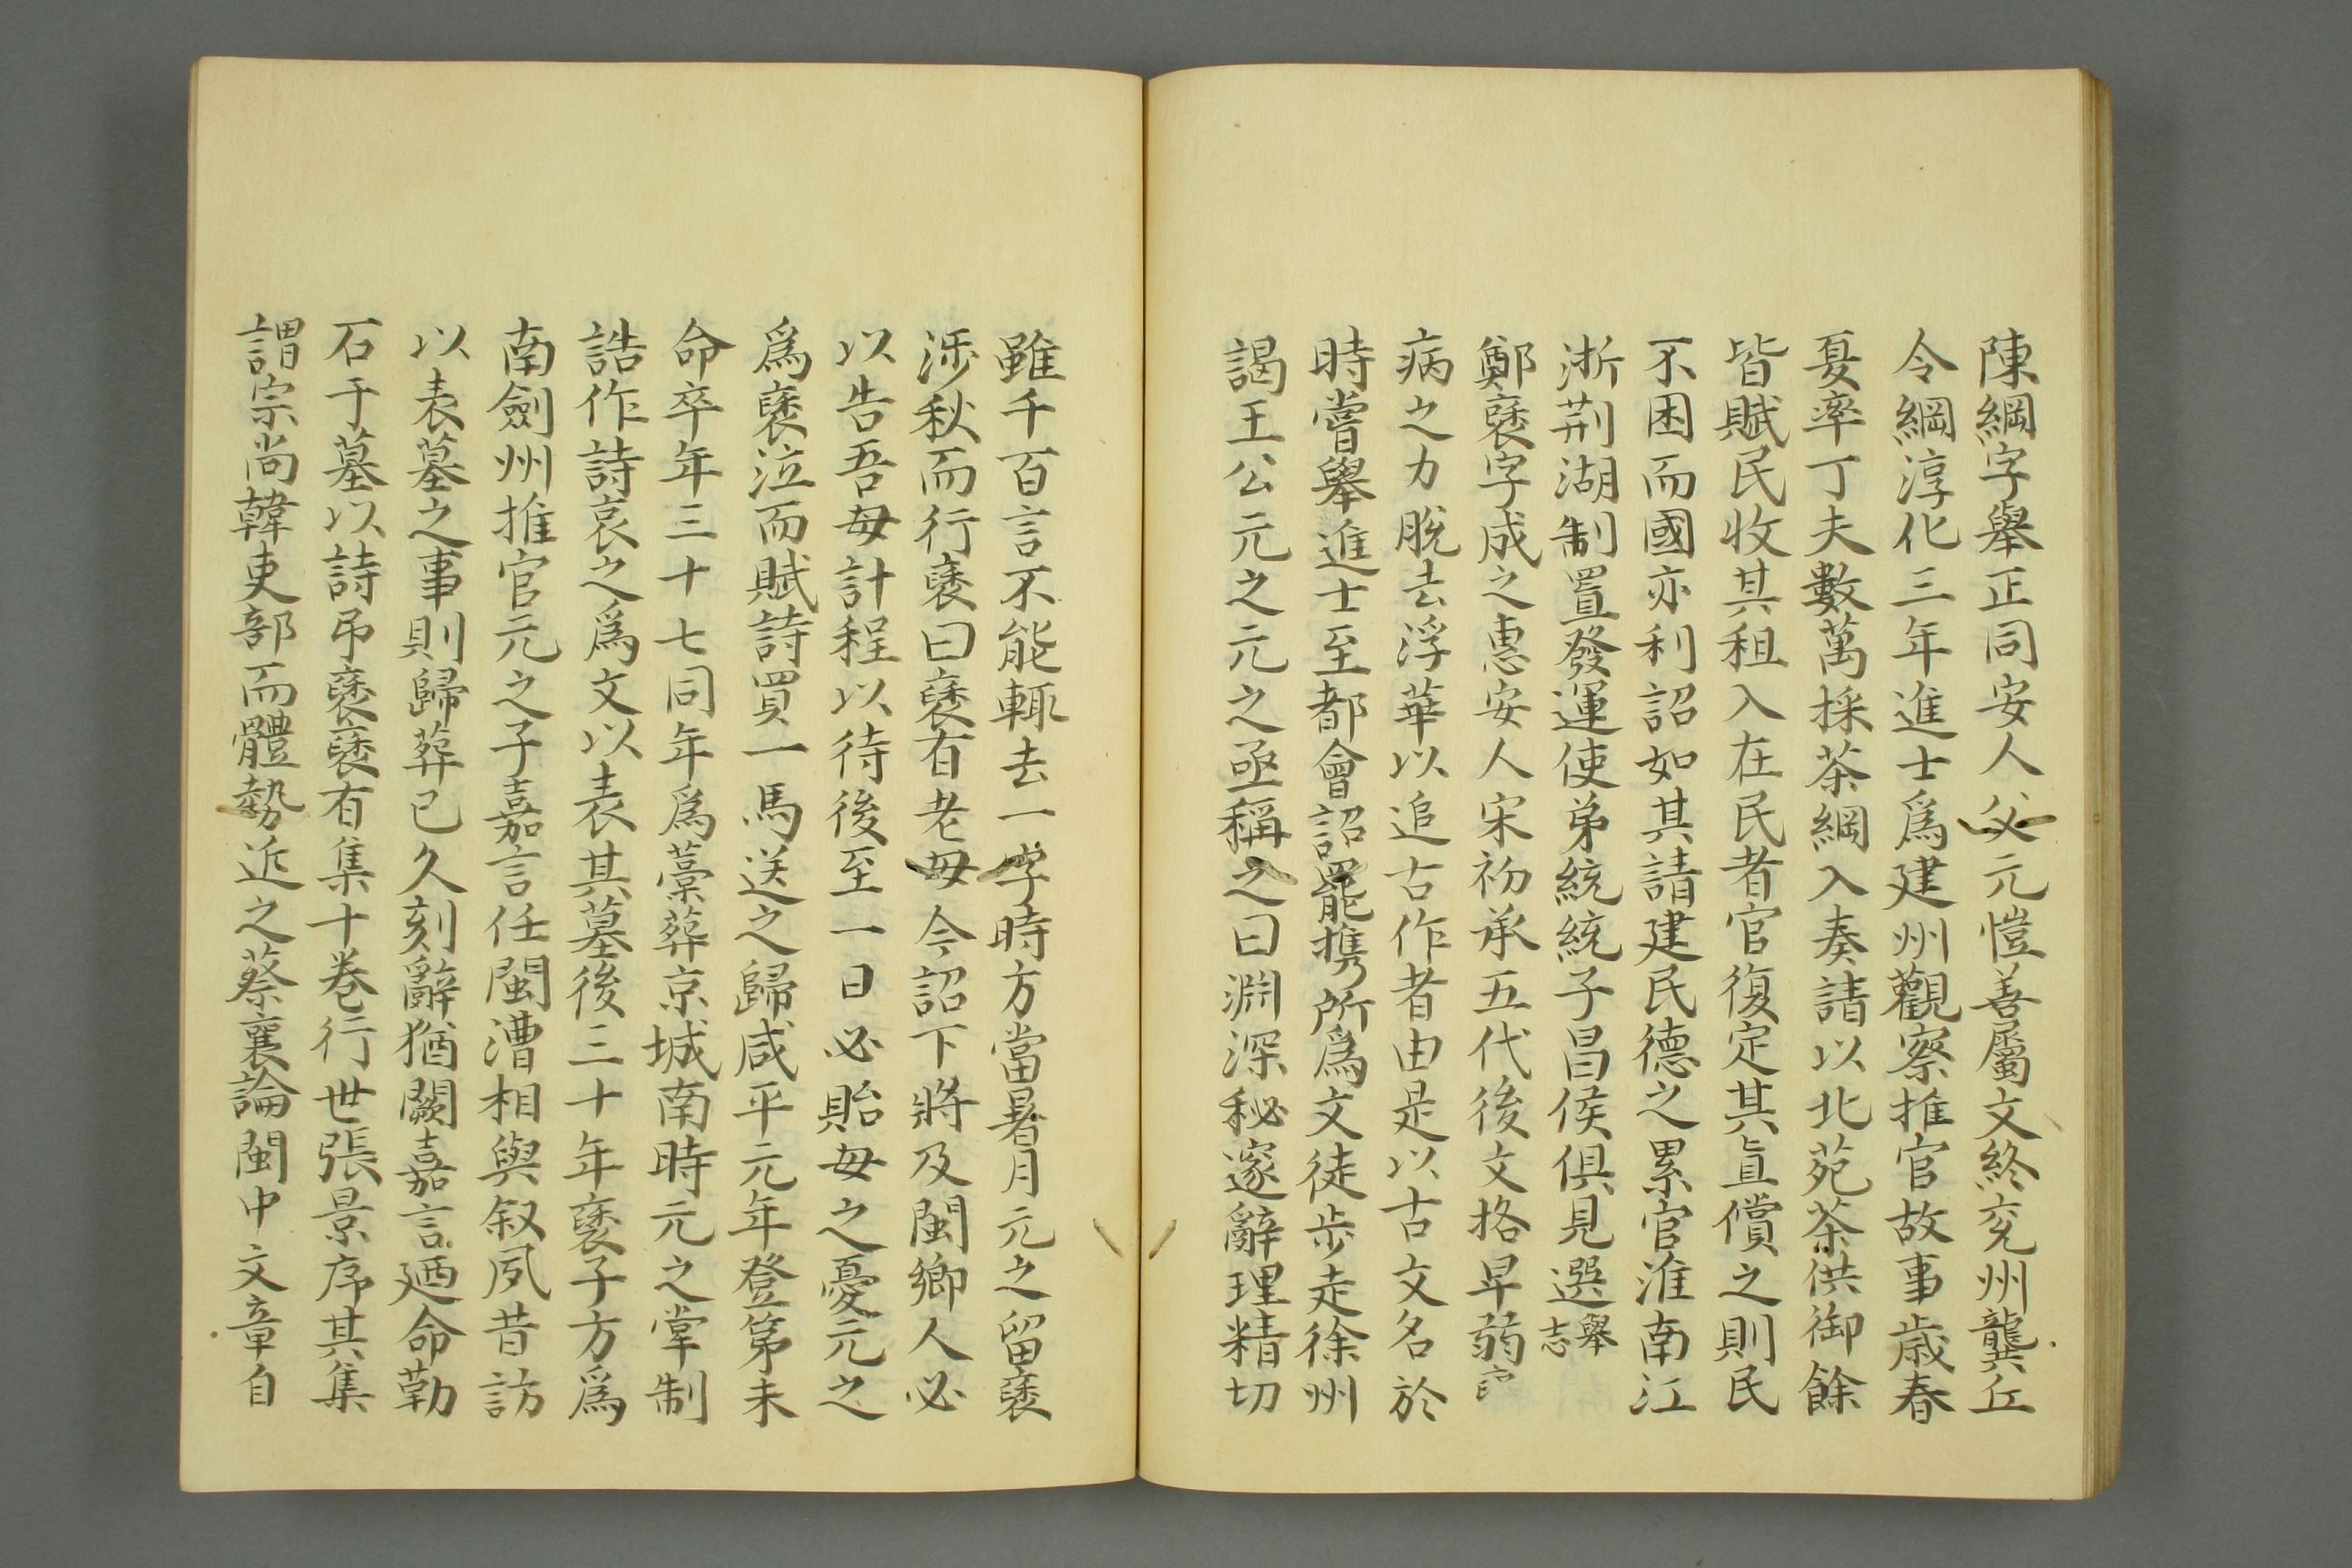 陳綱字舉正同安人父元愷善屬文終兖州龔丘
令綱淳化三年進士爲建州觀察推官故事歳春
夏率丁夫數萬採茶綱入奏請以北苑茶供御餘
皆賦民收其租入在民者官復定其直償之則民
不困而國亦利詔如其請建民德之累官淮南江
浙荆湖制置發運使弟統統子昌侯俱見選舉志
鄭褒字成之惠安人宋初承五代後文格早弱
病之力脫去浮華以追古作者由是以古文名於
時嘗舉進士至都會詔罷携所爲文徒步走徐州
謁王公元之元之亟稱之曰淵深秘邃辭理精切
雖千百言不能輒去一字時方當暑月元之留褒
涉秋而行褒曰褒有老毋今詔下將及閩鄉人必
以告吾毋計程以待後至一日必貽毋之憂元之
爲褒泣而賦詩買一馬送之歸咸平元年登第未
命卒年三十七同年爲藁葬京城南時元之掌制
誥作詩哀之爲文以表其墓後三十年褒子方爲
南劍州推官元之子嘉言任閩漕相與叙夙昔訪
以表墓之事則歸葬已久刻辭猶闕嘉言廼命勒
石于墓以詩吊褒褒有集十巻行世張景序其集
謂宗尚韓吏部而體勢近之蔡襄論閩中文章自